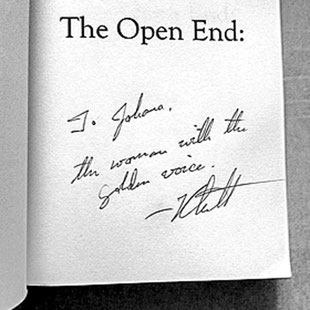 The Open End:
To Johana,
the woman with the
golden voice.